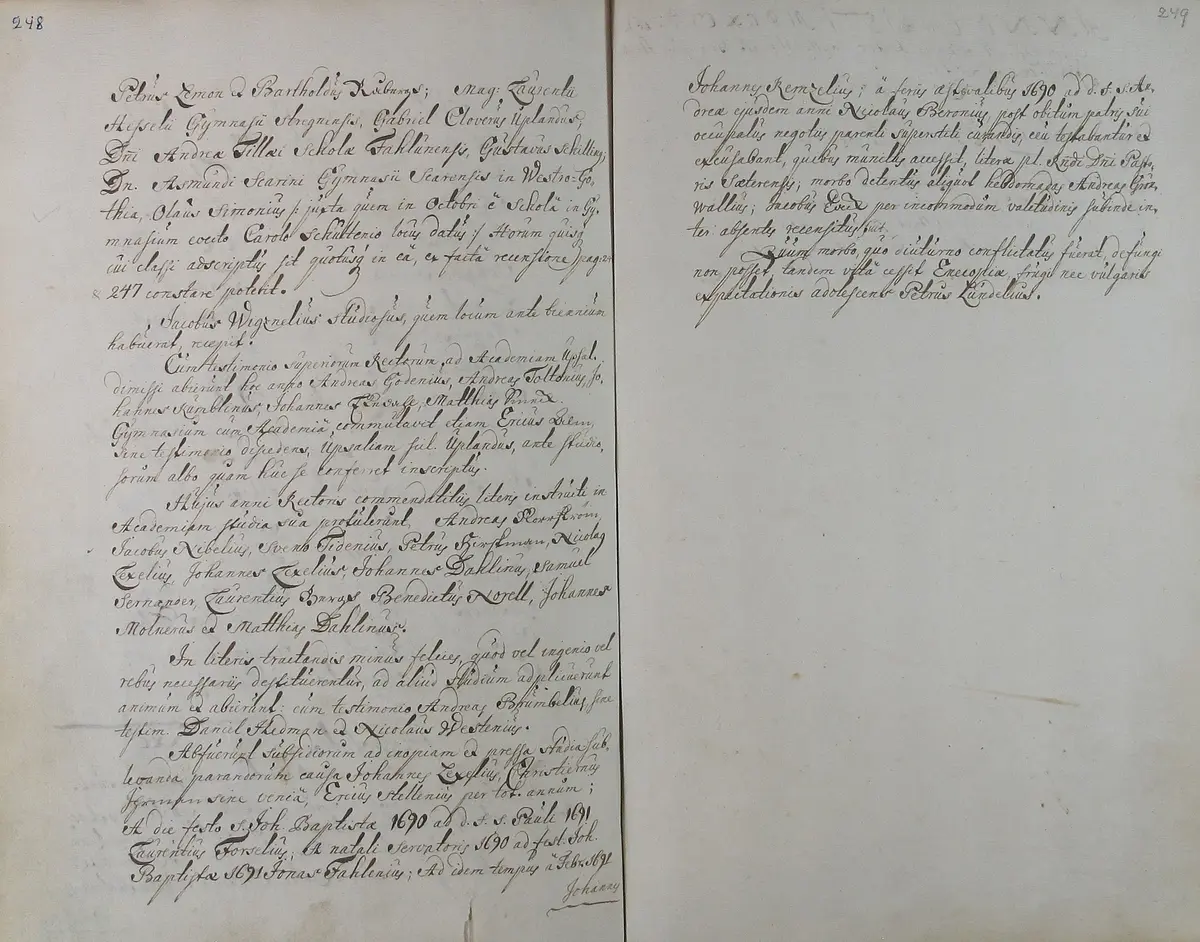 248
Petrus Lemon et Bartholdus Ruburgs; Mag: Laurentii
Hesselii Gymnasii Stregnensis, Gabriel Cloverus Uplandus;
Dni Andreæ Tillæi Scholæ Fahlunensis, Gustavus Schilling;
Dn. Asmundi Scarini Gymnasii Scarensis in Westro-Go,
thia, Olaus Simonius /: juxta quem in Octobri è Scholâ in Gy,
mnasium evecto Carolo Schultenio locus datus :/ Horum quisq
cui classi adscriptus sit quotusq in eâ, ex factâ recensione pagin:
247 constare poterit.
Jacobus Wignelius studiosus, quem locum ante biennium
habuerat, recepit.
Cum testimonio superiorum Rectorum ad Academiam Upsal.
dimissi abierunt hoc anno Andreas Godenius, Andreas Toltonius, Jo,
hannes Rumblinus, Johannes Matthias
Gymnasium cum Academiâ commutavit etiam Ericus
sine testimonio discedens, Upsaliam scil. Uplandus, ante studio,
sorum albo quam huc se conferret inscriptus.
Hujus anni Rectoris commendatitiis literis instructi in
Academiam studia sua protulerunt Andreas
Jacobus Nibelius, Sveno Tidenius, Petrus Hirstman, Nicolaq
Lexelius, Johannes Lexelius, Johannes Dahlinus, Samuel
Sernander, Laurentius Benedictus Norell, Johannes
Molnerus et Matthias Dahlinus.
In literis tractandis minus felices, quod vel ingenio vel
rebus necessariis destituerentur, ad aliud studium adplicuerunt
animum et abierunt: cum testimonio Andreas Brumbelius, sine
testim. Daniel Hedman et Nicolaus Westenius.
Abfuerunt subsidiorum ad inopiam et pressa studia sub,
levanda parandorum causa Johannes Lexelius, Christiernus
sine veniâ, Ericus Stellenius per tot. annum;
A die festo S. Joh. Baptistæ 1690 ad d. f. S. Pauli 1691
Laurentius Forselius; A natali Servatoris 1690 ad fest. Joh.
Baptistæ 1691 Jonas Fahlenius; Ad idem tempus à Febr. 1691
Johannes
249
Johannes Remzelius; à feriis æstivalibus 1690 ad d. f. S. An,
dreæ ejusdem anni Nicolaus Beronius post obitum patris sui
occupatus negotiis parenti superstiti curandis, ceu testabantur et
excusabant, quibus munitus accessit, literæ pl. Rndi Dni Pasto,
ris Sæterensis; morbo detentus aliquot hebdomadas Andreas Grön,
wallius; Jacobus per incommodum valetudinis subinde in,
ter absentes recensitus fuit.
Quum morbo, quo diuturno conflictatus fuerat, defungi
non posset, tandem vitâ cessit Enecopiæ frugi nec vulgaris
expectationis adolescens Petrus Lundelius.